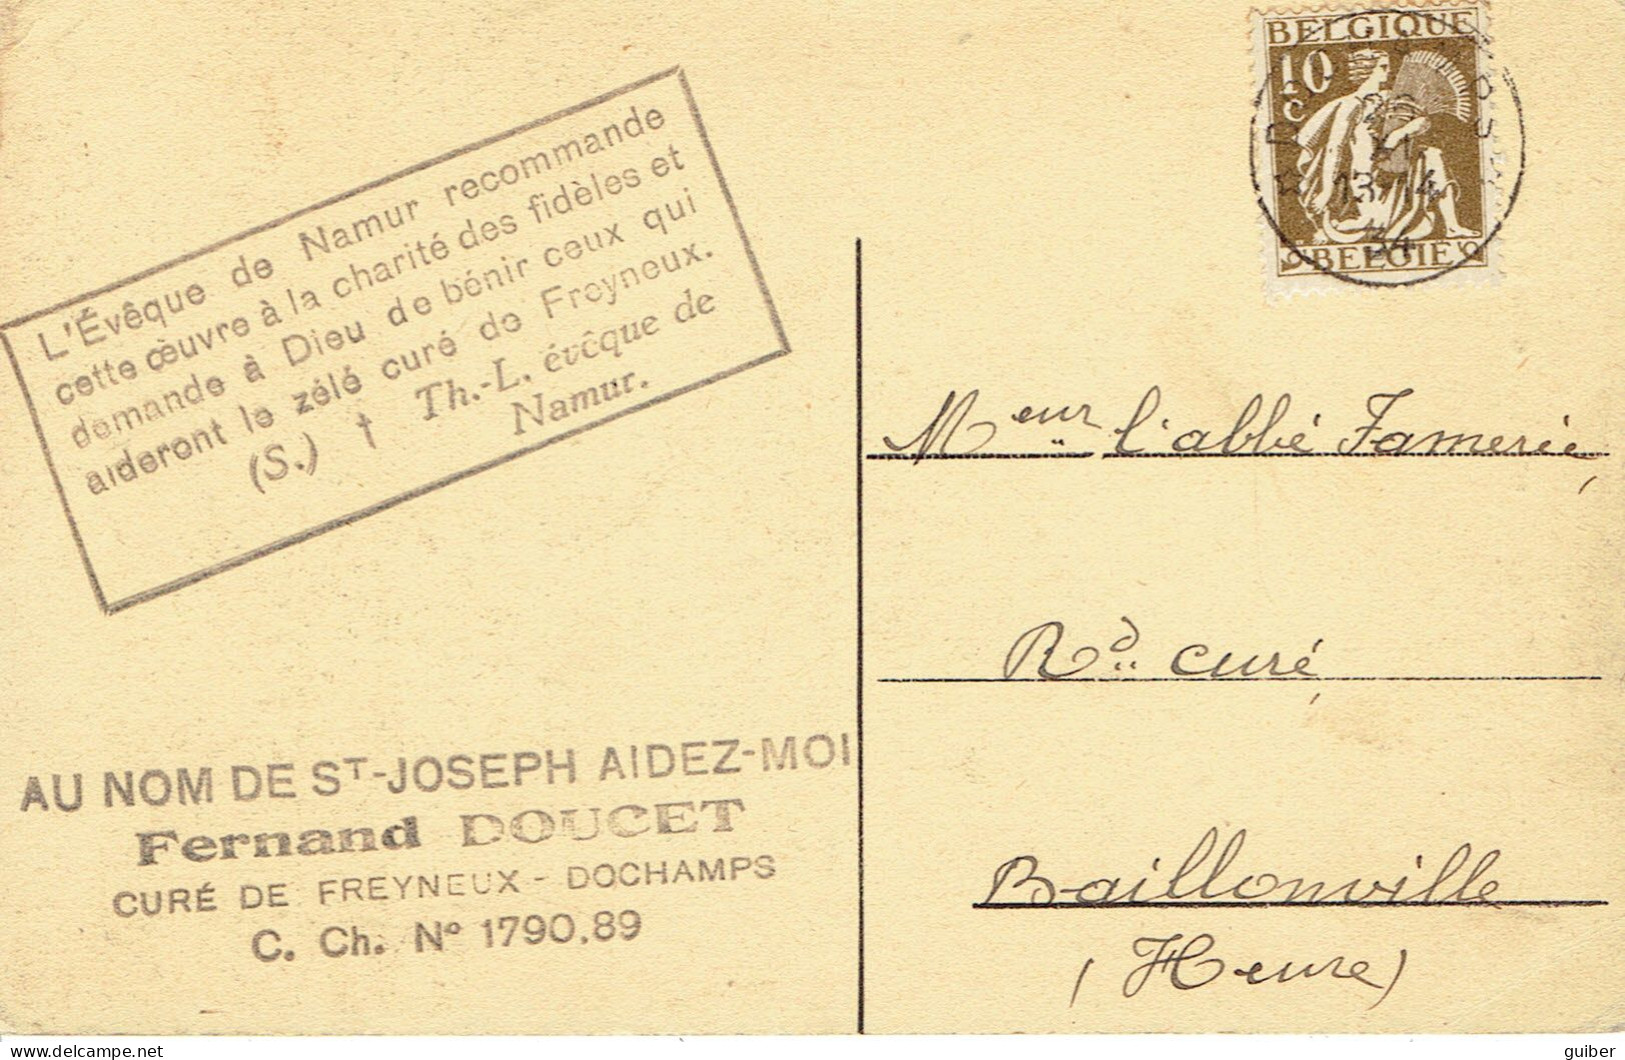 L'Évêque de Namur recommande
cette œuvre à la charité des fidèles et
demande à Dieu de bénir ceux qui
aideront le zélé curé de Freyneux.
(S.) † Th.-L. évêque de
Namur.
AU NOM DE ST-JOSEPH AIDEZ-MOI
Fernand DOUCET
CURÉ DE FREYNEUX - DOCHAMPS
C. Ch. N° 1790.89
BELGIQUE
10
c
BELGIE
13-14
34
Meur l'abbé Famerée,
Rd curé,
Baillonville
(Heure)
guiber